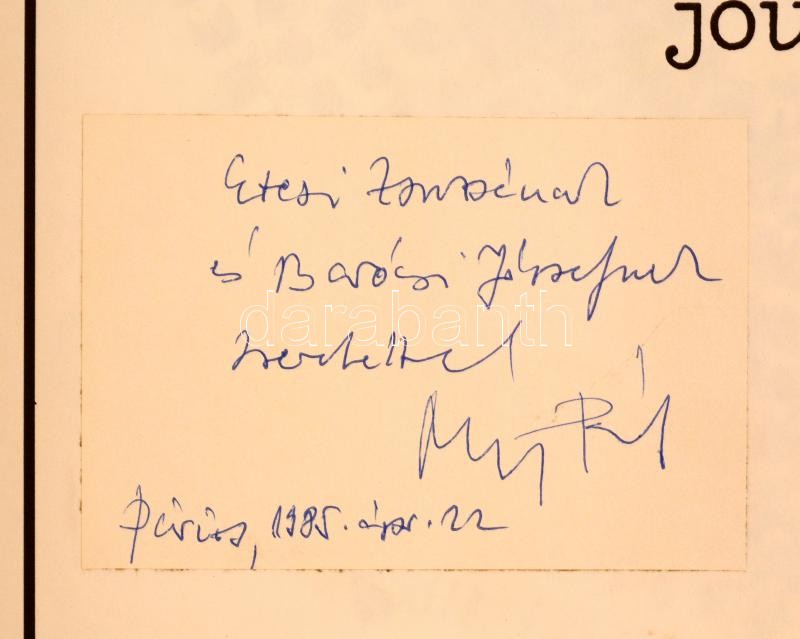 jou
Etesi Zsuzsának
és Barócsi Józsefnek
szeretettel
Nagy Pál
Párizs, 1985. ápr. 22
darabanth